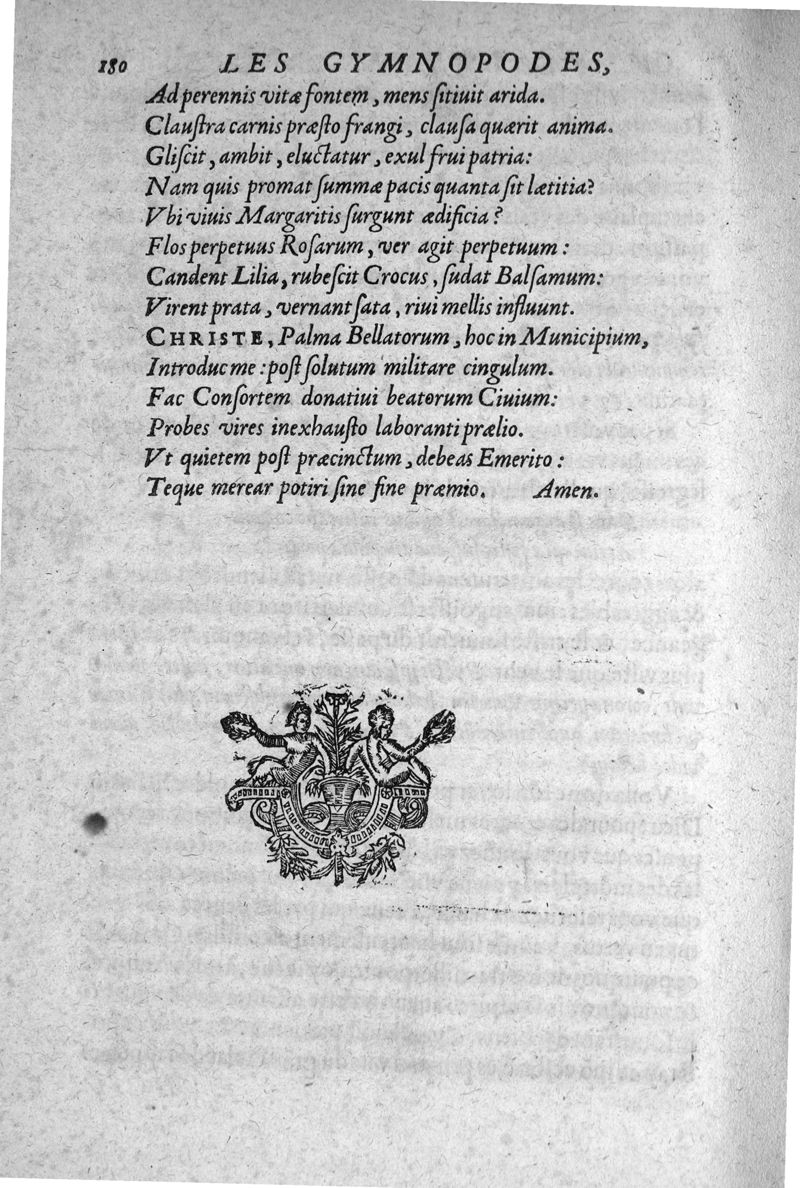 180 LES GYMNOPODES,
Ad perennis vitæ fontem, mens ſitiuit arida.
Clauſtra carnis præſto frangi, clauſa quærit anima.
Gliſcit, ambit, eluctatur, exul frui patria:
Nam quis promat ſummæ pacis quanta ſit lætitia?
Vbi viuis Margaritis ſurgunt ædificia?
Flos perpetuus Roſarum, ver agit perpetuum:
Candent Lilia, rubeſcit Crocus, ſudat Balſamum:
Virent prata, vernant ſata, riui mellis influunt.
CHRISTE, Palma Bellatorum, hoc in Municipium,
Introduc me: poſt ſolutum militare cingulum.
Fac Conſortem donatiui beatorum Ciuium:
Probes vires inexhauſto laboranti prælio.
Vt quietem poſt præcinctum, debeas Emerito:
Teque merear potiri ſine fine præmio. Amen.